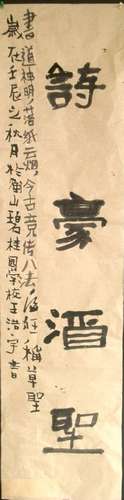 詩豪酒聖
書道神明落紙云烟今古竞传八法酒狂稱草聖
歲在壬辰之秋月於南山碧桂園学校王浩宇書